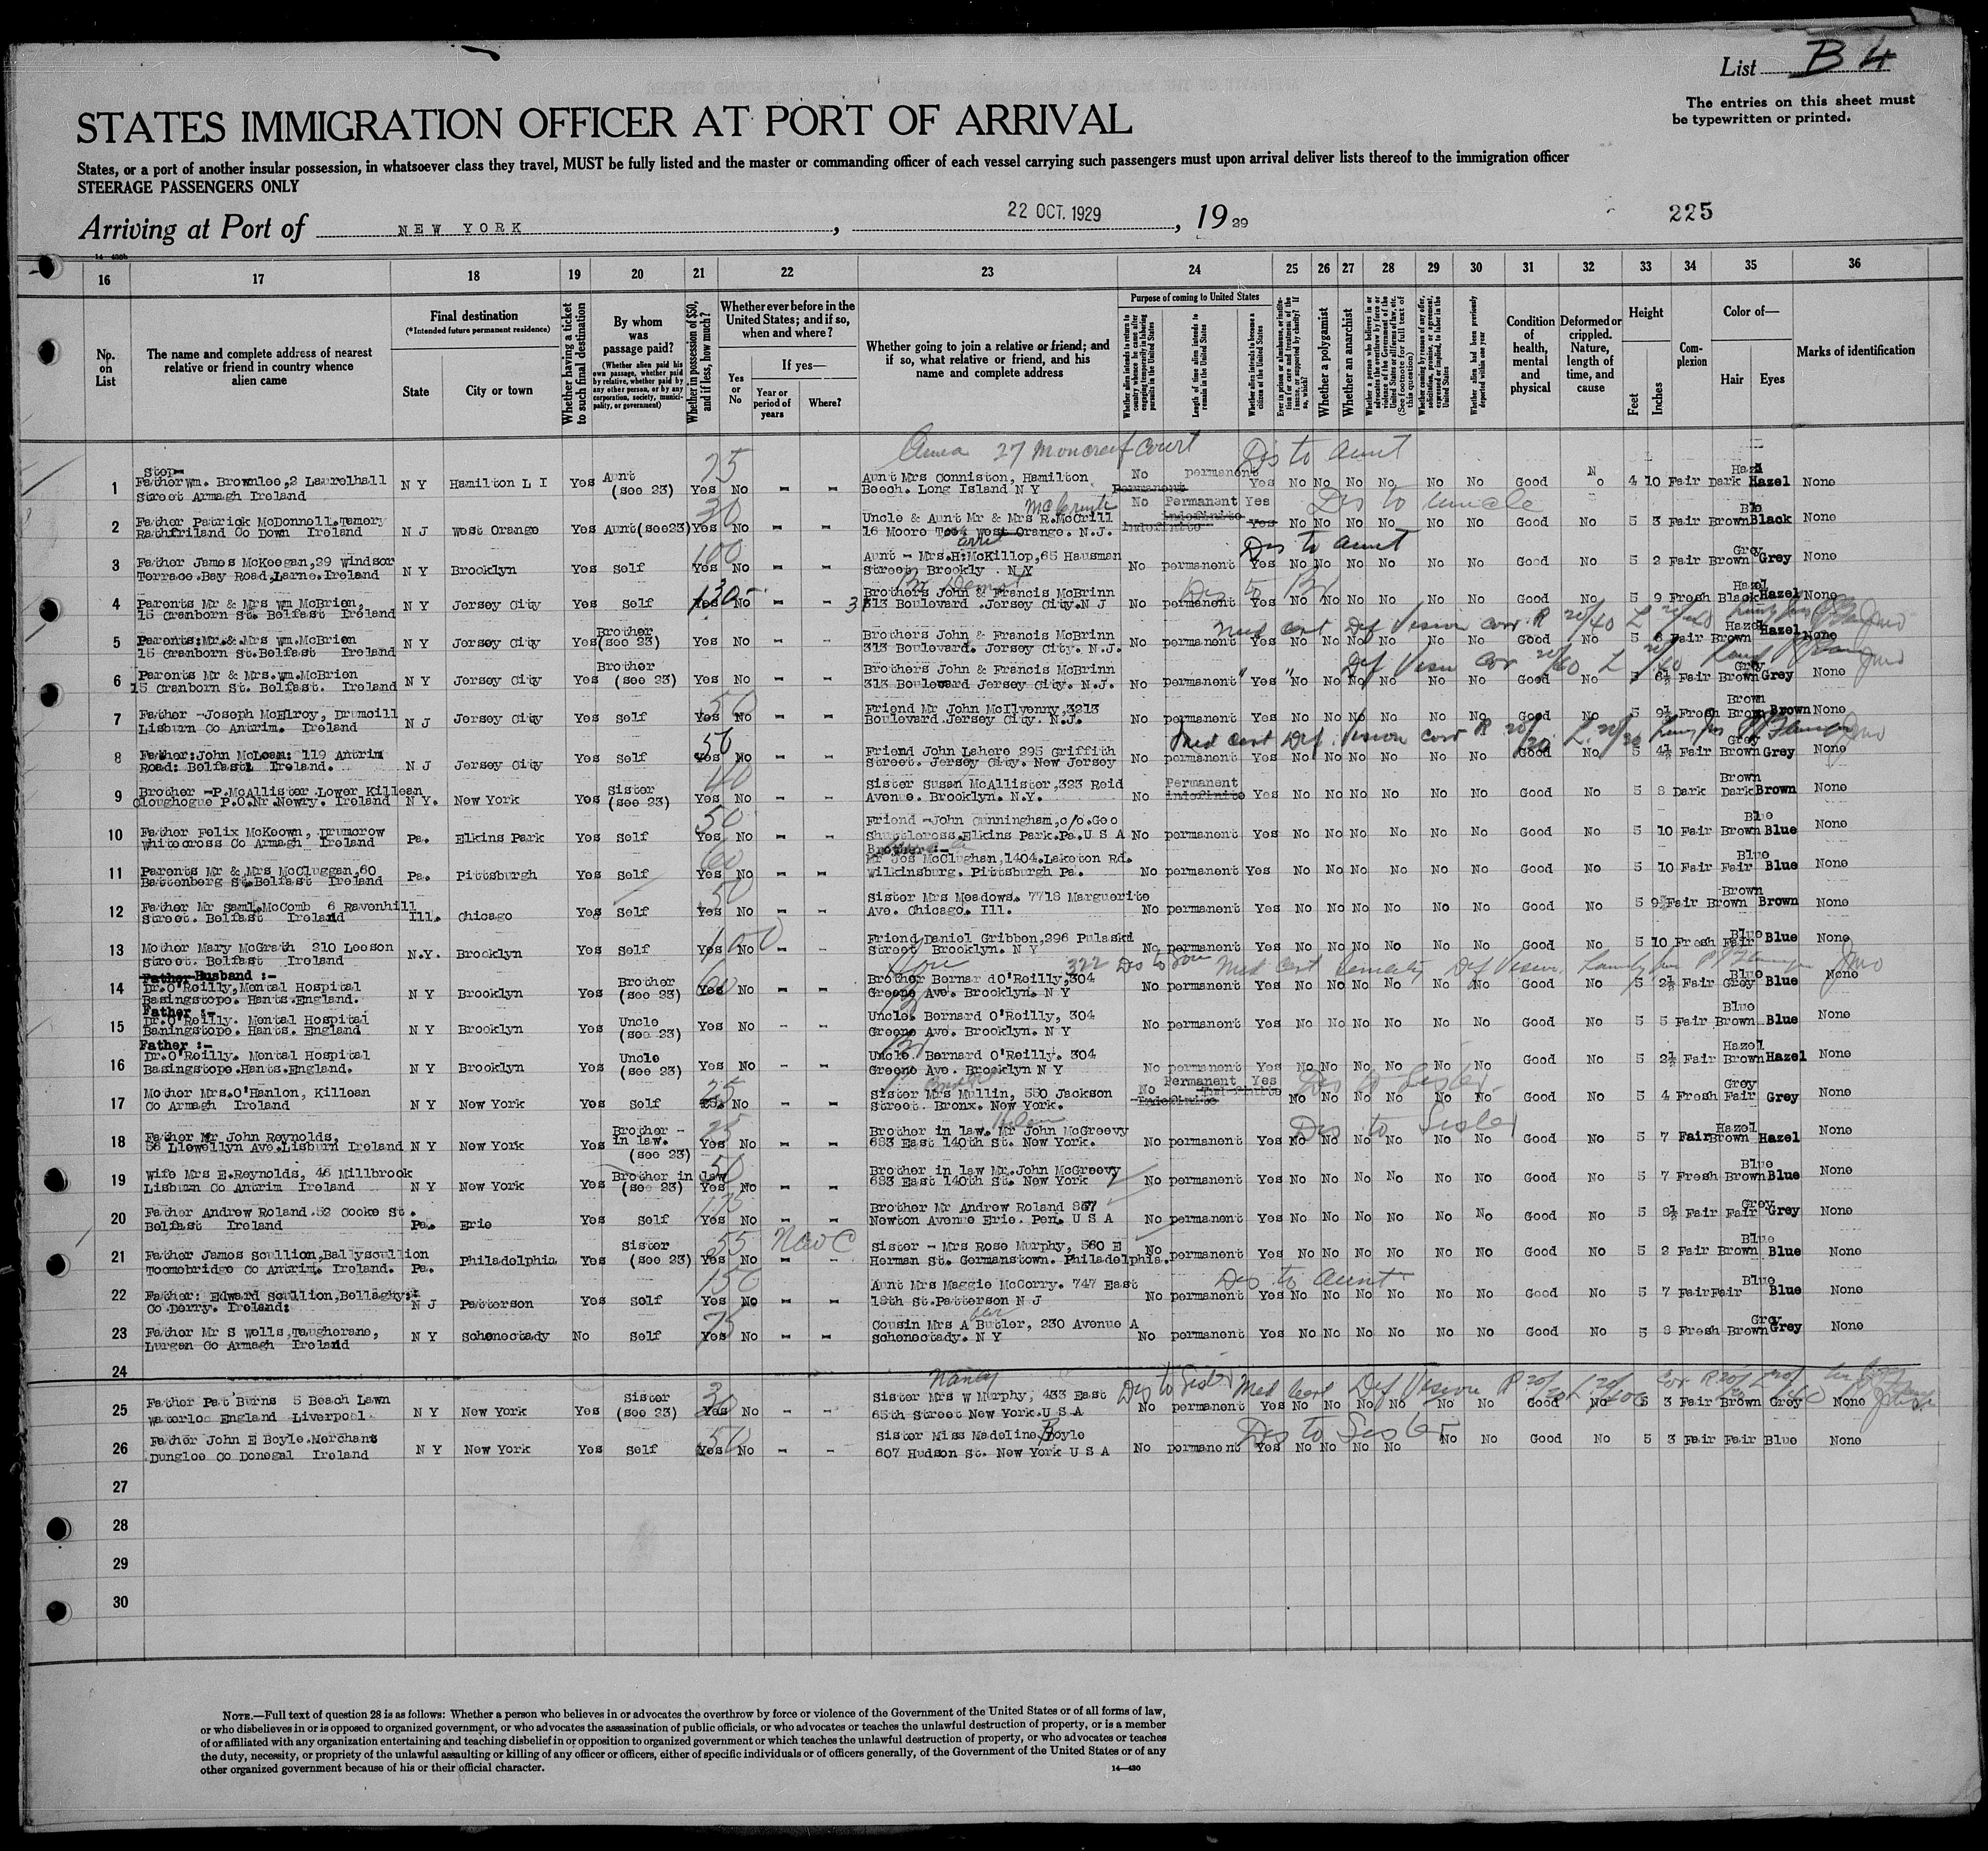 List B 4
The entries on this sheet must
be typewritten or printed.
STATES IMMIGRATION OFFICER AT PORT OF ARRIVAL
States, or a port of another insular possession, in whatsoever class they travel, MUST be fully listed and the master or commanding officer of each vessel carrying such passengers must upon arrival deliver lists thereof to the immigration officer
STEERAGE PASSENGERS ONLY
Arriving at Port of NEW YORK, 22 OCT. 1929, 19 29
225
16 17 18 19 20 21 22 23 24 25 26 27 28 29 30 31 32 33 34 35 36
No. on List
The name and complete address of nearest relative or friend in country whence alien came
Final destination
(*Intended future permanent residence)
State
City or town
Whether having a ticket to such final destination
By whom was passage paid?
(Whether alien paid his own passage, whether paid by relative, whether paid by any other person, or by any corporation, society, municipality, or government)
Whether in possession of $50, and if less, how much?
Whether ever before in the United States; and if so, when and where?
Yes or No
If yes—
Year or period of years
Where?
Whether going to join a relative or friend; and if so, what relative or friend, and his name and complete address
Purpose of coming to United States
Whether alien intends to return to country whence he came after engaging temporarily in laboring pursuits in the United States
Length of time alien intends to remain in the United States
Whether alien intends to become a citizen of the United States
Ever in prison or almshouse, or institution for care and treatment of the insane, or supported by charity? If so, which?
Whether a polygamist
Whether an anarchist
Whether a person who believes in or advocates the overthrow by force or violence of the Government of the United States or all forms of law, etc. (See footnote for full text of this question)
Whether coming by reason of any offer, solicitation, promise, or agreement, expressed or implied, to labor in the United States
Whether alien had been previously deported within one year
Condition of health, mental and physical
Deformed or crippled. Nature, length of time, and cause
Height
Feet
Inches
Complexion
Color of—
Hair
Eyes
Marks of identification
Anna 27 Moncreif Court Dis to Aunt
1 Step-Father Wm. Brownlee, 2 Laurelhall Street Armagh Ireland N Y Hamilton L I Yes Aunt (see 23) 25 Yes No - - Aunt Mrs Conniston, Hamilton Beech. Long Island N Y No permanent Yes No No No No No No Good No 4 10 Fair Dark Hazel None
2 Father Patrick McDonnell. Tamery Rathfriland Co Down Ireland N J West Orange Yes Aunt(see23) 30 Yes No - - Uncle & Aunt Mr & Mrs R.McGrill 16 Moore West Orange. N.J. No Permanent Yes Dis to Uncle No No No No No No Good No 5 3 Fair Brown Black None
3 Father James McKeegan, 29 Windsor Terrace. Bay Road, Larne. Ireland N Y Brooklyn Yes Self 100 Yes No - - Aunt - Mrs. H. McKillop, 65 Hausman Street Brookly . N Y Dis to Aunt No permanent Yes No No No No No No Good No 5 2 Fair Brown Grey None
4 Parents Mr & Mrs Wm McBrien, 15 Cranborn St. Belfast Ireland N Y Jersey City Yes Self 130 Yes No - - Brothers John & Francis McBrinn 313 Boulevard .Jersey City. N J Dis to Br No permanent Yes No No No No No No Good No 5 9 Fresh Black Hazel None
5 Parents: Mr. & Mrs Wm. McBrien 15 Cranborn St. Belfast Ireland N Y Jersey City Yes Brother (see 23) Yes No - - Brothers John & Francis McBrinn 313 Boulevard. Jersey City. N.J. Med Cert Def Vision corr. R 20/40 L 20/40 No permanent Yes No No No No No No Good No 5 8 Fair Brown Hazel None
6 Parents Mr & Mrs. Wm. McBrien 15 Cranborn St. Belfast. Ireland N Y Jersey City Yes Brother (see 23) Yes No - - Brothers John & Francis McBrinn 313 Boulevard Jersey City. N.J. No permanent Yes No No No No No No Good No 5 8½ Fair Brown Grey None
7 Father -Joseph McElroy, Drumcill Lisburn Co Antrim. Ireland N J Jersey City Yes Self 50 Yes No - - Friend Mr John McIlvenny, 3213 Boulevard. Jersey City. N.J. No permanent Yes No No No No No No Good No 5 9½ Fresh Brown Brown None
8 Father: John McLean: 119 Antrim Road: Belfast. Ireland. N J Jersey City Yes Self 50 Yes No - - Friend John Lahere 295 Griffith Street. Jersey City. New Jersey Med Cert Def. Vision corr R 20/20 L. 20/30 No permanent Yes No No No No No No Good No 5 4½ Fair Brown Grey None
9 Brother -P. McAllister Lower Killean Cloughogue P.O. Nr. Newry. Ireland N Y. New York Yes Sister (see 23) 40 Yes No - - Sister Susan McAllister, 323 Reid Avenue. Brooklyn. N.Y. No Permanent Yes No No No No No No Good No 5 8 Dark Dark Brown None
10 Father Felix McKeown, Drumcrow Whitecross Co Armagh Ireland Pa. Elkins Park Yes Self 50 Yes No - - Friend -John Cunningham, c/o. Geo Shuttleross. Elkins Park. Pa. U S A No permanent Yes No No No No No No Good No 5 10 Fair Brown Blue None
11 Parents Mr & Mrs McCluggan, 60 Battenberg St. Belfast Ireland Pa. Pittsburgh Yes Self 60 Yes No - - Brother:- Mr Jos McClughan, 1404. Laketon Rd. Wilkinsburg. Pittsburgh Pa. No permanent Yes No No No No No No Good No 5 10 Fair Fair Blue None
12 Father Mr Saml. McComb 6 Ravenhill Street. Belfast Ireland Ill. Chicago Yes Self 50 Yes No - - Sister Mrs Meadows. 7718 Marguerite Ave. Chicago. Ill. No permanent Yes No No No No No No Good No 5 9½ Fair Brown Brown None
13 Mother Mary McGrath 210 Leeson Street. Belfast Ireland N.Y. Brooklyn Yes Self 100 Yes No - - Friend Daniel Gribbon, 296 Pulaski Street Brooklyn. N Y No permanent Yes No No No No No No Good No 5 10 Fresh Fair Blue None
14 Father Husband :- Dr. O'Reilly, Mental Hospital Basingstope. Hants. England. N Y Brooklyn Yes Brother (see 23) 60 Yes No - - Brother Bernar dO'Reilly, 304 Greene Ave. Brooklyn. N Y 322 No permanent Yes No No No No No No Good No 5 2½ Fair Grey Blue None
15 Father :- Dr. O'Reilly. Mental Hospital Baningstope. Hants. England N Y Brooklyn Yes Uncle (see 23) Yes No - - Uncle. Bernard O'Reilly, 304 Greene Ave. Brooklyn. N Y No permanent Yes No No No No No No Good No 5 5 Fair Brown Blue None
16 Father :- Dr. O'Reilly. Mental Hospital Basingstope. Hants. England. N Y Brooklyn Yes Uncle (see 23) Yes No - - Uncle. Bernard O'Reilly. 304 Greene Ave. Brooklyn N Y No permanent Yes No No No No No No Good No 5 2½ Fair Brown Hazel None
17 Mother Mrs. O'Hanlon, Killean Co Armagh Ireland N Y New York Yes Self 25 No - - Sister Mrs Mullin, 550 Jackson Street. Bronx. New York. No Permanent Yes Dis to Sister No No No No No No Good No 5 4 Fresh Fair Grey None
18 Father Mr John Reynolds, 56 Llewellyn Ave. Lisburn Ireland N Y New York Yes Brother - in law. (see 23) 25 Yes No - - Helen Brother in law. Mr John McGreevy 683 East 140th St. New York. Dis to Sister No permanent Yes No No No No No No Good No 5 7 Fair Brown Hazel None
19 Wife Mrs E. Reynolds, 46 Millbrook Lisburn Co Antrim Ireland N Y New York Yes Brother in law (see 23) 50 Yes No - - Brother in law Mr. John McGreevy 683 East 140th St. New York No permanent Yes No No No No No No Good No 5 7 Fresh Brown Blue None
20 Father Andrew Roland. 52 Cooke St. Belfast Ireland Pa. Erie Yes Self 175 Yes No - - Brother Mr Andrew Roland 857 Newton Avenue Erie. Pen. U S A No permanent Yes No No No No No No Good No 5 8½ Fair Fair Grey None
21 Father James Scullion, Ballyscullion Toomebridge Co Antrim. Ireland. Pa. Philadelphia Yes Sister (see 23) 55 Yes No - - Sister - Mrs Rose Murphy, 560 E Herman St. Germanstown. Philadelphia. No permanent Yes No No No No No No Good No 5 2 Fair Brown Blue None
22 Father: Edward Scullion, Bellaghy: Co Derry. Ireland: N J Patterson Yes Self 150 Yes No - - Aunt Mrs Maggie McCorry. 747 East 19th St. Patterson N J Dis to Aunt No permanent Yes No No No No No No Good No 5 7 Fair Fair Blue None
23 Father Mr S Wells, Taugherane, Lurgan Co Armagh Ireland N Y Schenectady No Self 75 Yes No - - Cousin Mrs A Butler, 230 Avenue A Schenectady. N Y No permanent Yes No No No No No No Good No 5 8 Fresh Brown Grey None
24
25 Father Pat Burns 5 Beach Lawn Waterloo England Liverpool N Y New York Yes Sister (see 23) 30 Yes No - - Nancy Sister Mrs W Murphy, 433 East 65th Street New York. U S A Dis to Sister Med Cert Def Vision No permanent Yes No No No No No No Good No 5 3 Fair Brown Grey None
26 Father John E Boyle. Merchant Dungloe Co Donegal Ireland N Y New York Yes Self 50 Yes No - - Sister Miss Madeline Boyle 607 Hudson St. New York U S A Dis to Sister No permanent Yes No No No No No No Good No 5 3 Fair Fair Blue None
27
28
29
30
NOTE.—Full text of question 28 is as follows: Whether a person who believes in or advocates the overthrow by force or violence of the Government of the United States or of all forms of law,
or who disbelieves in or is opposed to organized government, or who advocates the assassination of public officials, or who advocates or teaches the unlawful destruction of property, or is a member
of or affiliated with any organization entertaining and teaching disbelief in or opposition to organized government or which teaches the unlawful destruction of property, or who advocates or teaches
the duty, necessity, or propriety of the unlawful assaulting or killing of any officer or officers, either of specific individuals or of officers generally, of the Government of the United States or of any
other organized government because of his or their official character.
14—430